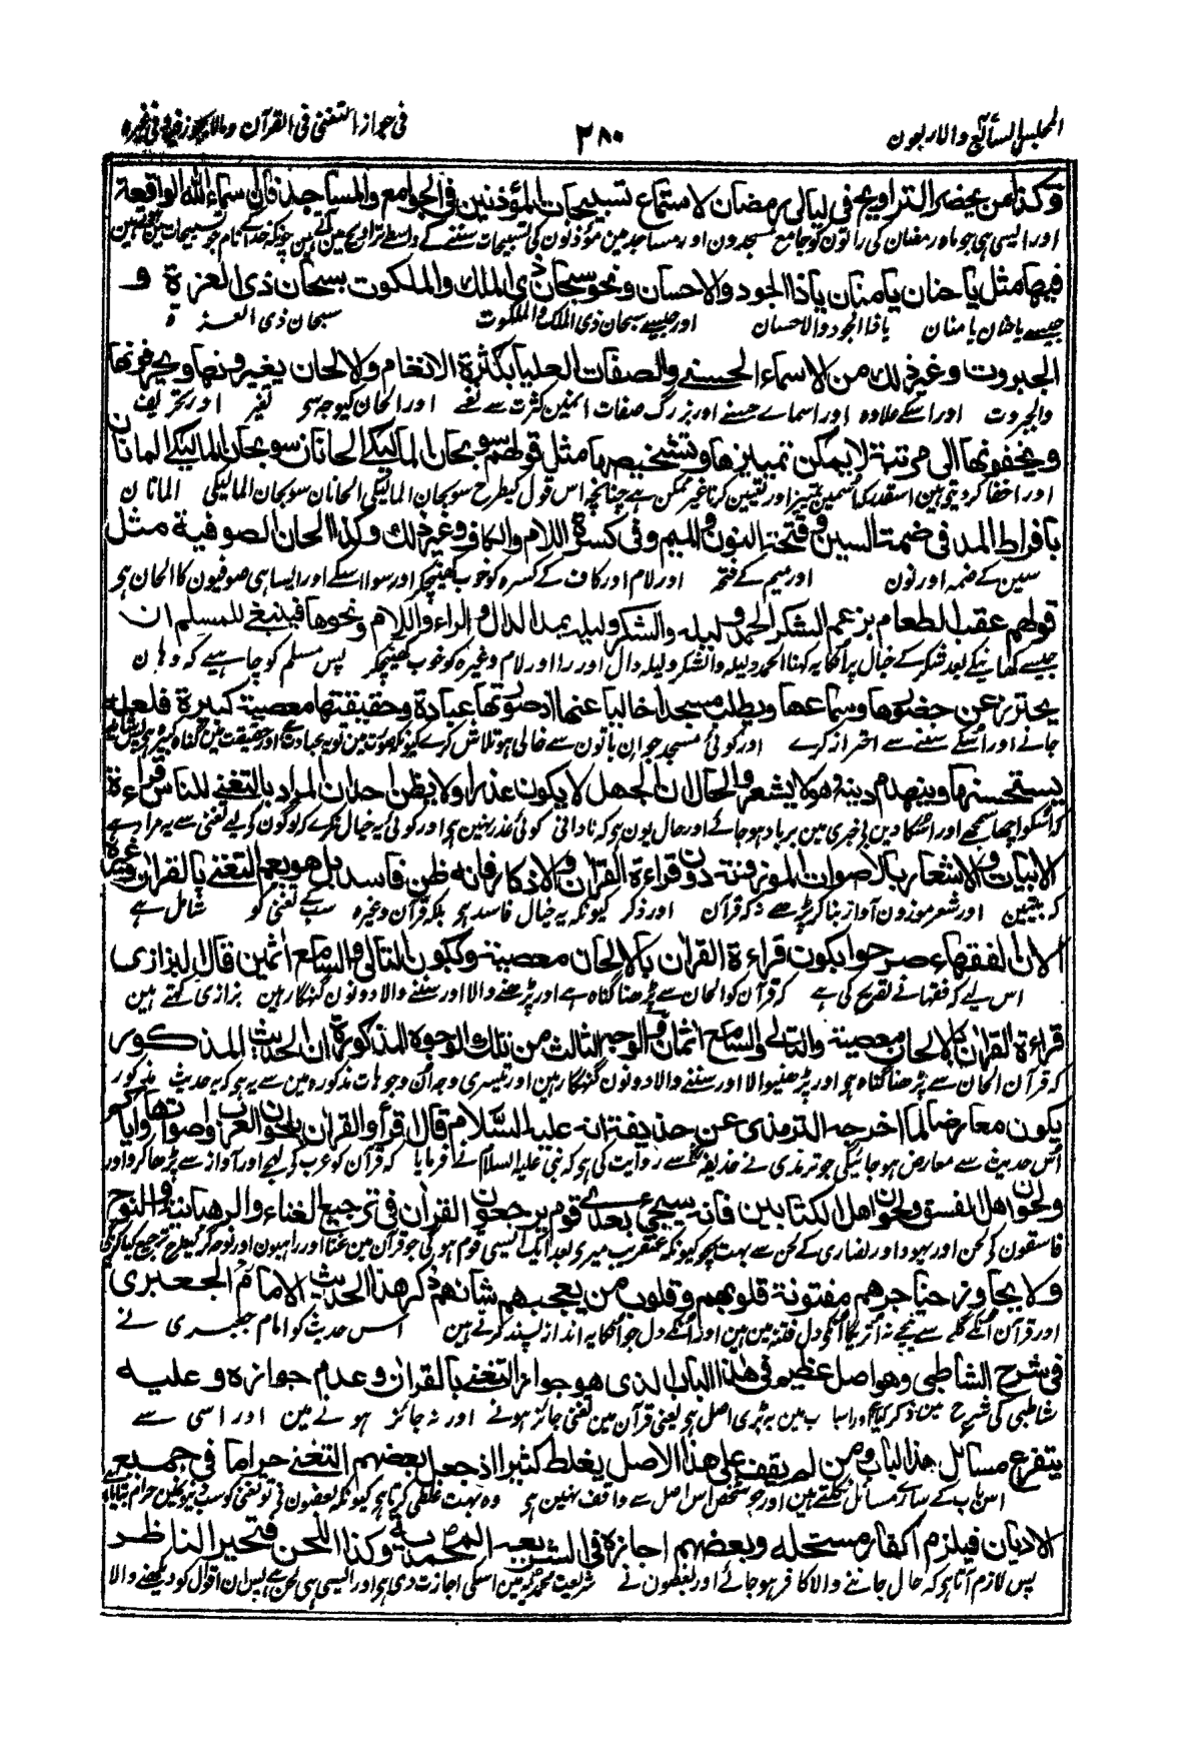 المجلس السابع والاربون
٢٨٠
فی جواز التغنی فی القرآن وما لا یجوز فیه وفی غیره
وكذا من يحضر التراويح فی ليالی رمضان لاستماع تسبيحات المؤذنين فی الجوامع والمساجد فان اسماء الله الواقعة
اور ایسی ہی جو ماہ رمضان کی راتون کو جامع مسجدون اور مساجد مین مؤذنون کی تسبیحات سننے کے واسطے تراویح مین آتے ہین چونکہ خدا کے نام جو تسبیحات مین ہین
فيها مثل يا حنان يا منان يا ذا الجود والاحسان ونحو سبحان ذی الملك والملكوت سبحان ذی العزة و
جیسے یا حنان یا منان یا ذا الجود والاحسان اور جیسے سبحان ذی الملک والملکوت سبحان ذی العزة
الجبروت وغير ذلك من الاسماء الحسنی والصفات العليا بكثرة الانغام والالحان يغيرونها ويحرفونها
والجبروت اور اسکے علاوہ اور اسماے حسنے اور بزرگ صفات انمین کثرت سے نغمے اور الحان کیوجہ سے تغیر اور تحریف
ويخفونها الی مرتبة لا يمكن تمييزها وتشخيصها مثل قولهم سوبحان المالیكی الحانان سوبحان المالیكی المانان
اور اخفا کر دیتے ہین اسقدر کہ اسمین تمییز اور تعیین کرنا غیر ممکن ہے چنانچہ اس قول کیطرح سوبحان المالیکی الحانان سوبحان المالیکی المانان
بافراط المد فی ضمة السين وفتحة النون والميم وفی كسرة اللام والكاف وغير ذلك وكذا الحان الصوفية مثل
سین کے ضمہ اور نون اور میم کے فتحہ اور لام اور کاف کے کسرہ کو خوب کھینچکر اور سوا اسکے اور ایسا ہی صوفیون کا الحان ہے
قولهم عقب الطعام بزعم الشكر الحمد وليله والشكر وليله بمد الدال والراء واللام ونحوها فينبغی للمسلم ان
جیسے کھانیکے بعد شکر کے خیال پر انکا یہ کہنا الحمد ولیلہ والشکر ولیلہ دال اور را اور لام وغیرہ کو خوب کھینچکر پس مسلم کو چاہیے کہ وہان
يحترز عن حضورها وسماعها ويطلب مسجدا خاليا عنها اذ صورتها عبادة وحقيقتها معصية كبيرة فلعله
جانے اور اسکے سننے سے احتراز کرے اور کوئی مسجد جو ان باتون سے خالی ہو تلاش کرے کیونکہ صورت مین تو یہ عبادت ہے اور حقیقت مین گناہ کبیرہ ہے پس شاید
يستحسنها وينهدم دينه وهو لا يشعر والحال ان الجهل لا يكون عذرا ولا يظن احد ان المراد بالتغنی للناس قراءة
کہ اسکو اچھا سمجھے اور اسکا دین بے خبری مین برباد ہوجائے اور حال یون ہے کہ نادانی کوئی عذر نہین ہے اور کوئی یہ خیال نکرے کہ لوگون کے لیے تغنی سے یہ مراد ہے
الابيات والاشعار بالاصوات الموزونة دون قراءة القران والاذكار فانه ظن فاسد بل هو يعم التغنی بالقران وغيرها
کہ بیتین اور شعر موزون آواز بنا کر پڑھے نہ کہ قرآن اور ذکر کیونکہ یہ خیال فاسد ہے بلکہ قرآن وغیرہ سب کے تغنی کو شامل ہے
لان الفقهاء صرحوا بكون قراءة القران بالالحان معصية وكون التالی والسامع اثمين قال البزازی
اس لیے کہ فقہا نے تصریح کی ہے کہ قرآن کو الحان سے پڑھنا گناہ ہے اور پڑھنے والا اور سننے والا دونون گنہگار ہین بزازی کہتے ہین
قراءة القران بالالحان معصية والتالی والسامع اثمان والوجه الثالث من تلك الوجوه المذكورة ان الحديث المذكور
کہ قرآن الحان سے پڑھنا گناہ ہے اور پڑھنیوالا اور سننے والا دونون گنہگار ہین اور تیسری وجہ ان وجوہات مذکورہ مین سے یہ ہے کہ یہ حدیث مذکور
يكون معارضا لما اخرجه الترمذی عن حذيفة انه عليه السلام قال اقرأوا القران بلحون العرب واصواتها واياكم
اس حدیث سے معارض ہوجائیگی جو ترمذی نے حذیفہ سے روایت کی ہے کہ نبی علیہ السلام نے فرمایا کہ قرآن کو عرب کے لہجے اور آواز سے پڑھا کرو اور
ولحون اهل الفسق ولحون اهل الكتابين فانه سيجئ بعدی قوم يرجعون القران فی ترجيع الغناء والرهبانية والنوح
فاسقون کے لحن اور یہود اور نصاری کے لحن سے بہت بچو کیونکہ عنقریب میرے بعد ایک ایسی قوم ہوگی جو قرآن مین غنا اور راہبون اور نوحہ گر کیطرح ترجیع کیا کریگی
ولا يجاوز حناجرهم مفتونة قلوبهم وقلوب من يعجبهم شأنهم ذكر هذا الحديث الامام الجعبری
اور قرآن انکے گلے سے نیچے نہ اتریگا انکے دل فتنہ مین ہین اور انکے دل جو انکا یہ انداز پسند کرتے ہین اس حدیث کو امام جعبری نے
فی شرح الشاطبی وهو اصل عظيم فی هذا الباب الذی هو جواز التغنی بالقران وعدم جوازه وعليه
شاطبی کی شرح مین ذکر کیا ہے اور اس باب مین یہ بڑی اصل ہے یعنی قرآن مین تغنی جائز ہونے اور نہ جائز ہونے مین اور اسی سے
يتفرع مسائل هذا الباب ومن لم يقف علی هذا الاصل يغلط كثيرا اذ جعل بعضهم التغنی حراما فی جميع
اس باب کے سارے مسائل نکلتے ہین اور جو شخص اس اصل سے واقف نہین ہے وہ بہت غلطی کرتا ہے کیونکہ بعضون نے تو تغنی کو سب دینونمین حرام بتایا ہے
الاديان فيلزم اكفار مستحله وبعضهم اجازه فی الشريعة المحمدية وكذا اللحن فتحير الناظر
پس لازم آتا ہے کہ حال جاننے والا کافر ہوجائے اور بعضون نے شریعت محمدیہ مین اسکی اجازت دی ہے اور ایسی ہی لحن ہے پس ان اقوال کو دیکھنے والا